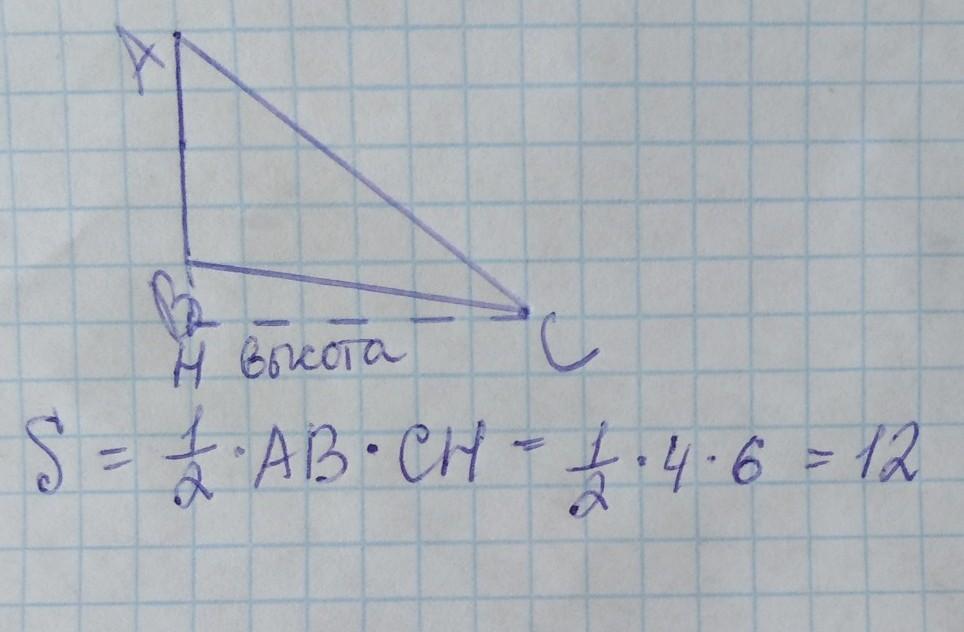 A
B
H высота C
S = 1/2 · AB · CH = 1/2 · 4 · 6 = 12